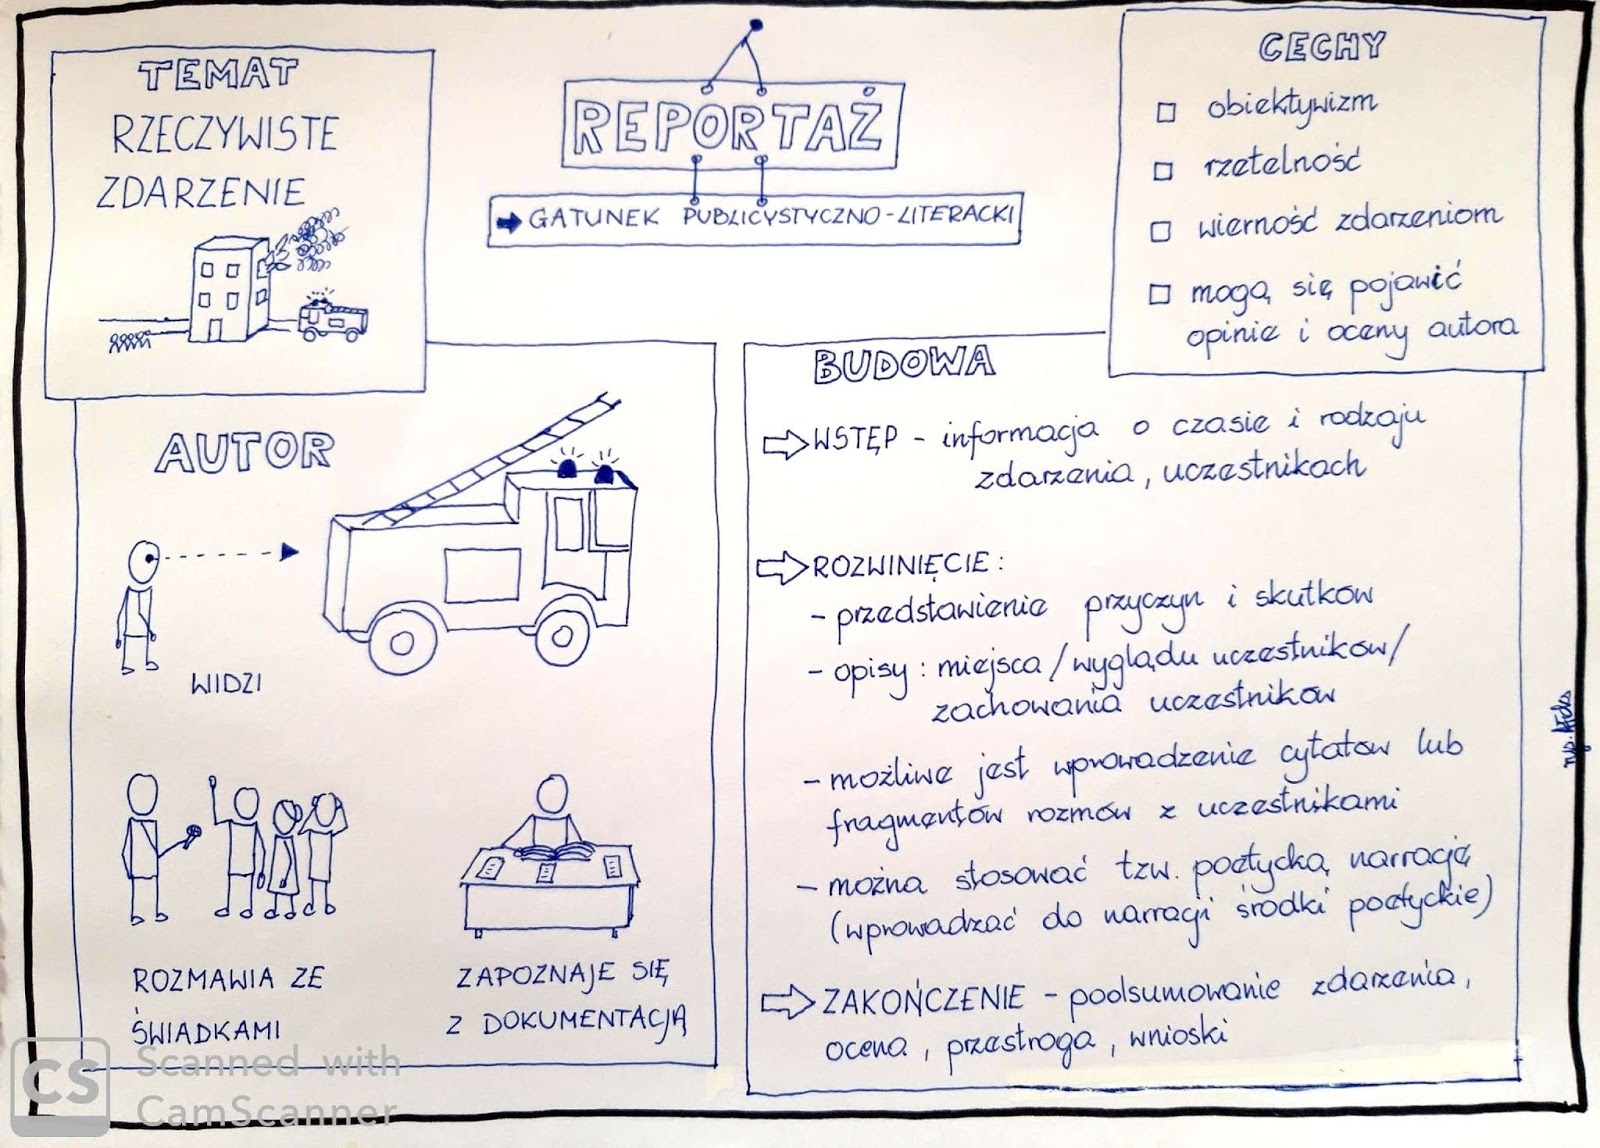 REPORTAŻ
➡ GATUNEK PUBLICYSTYCZNO-LITERACKI
TEMAT
RZECZYWISTE
ZDARZENIE
CECHY
□ obiektywizm
□ rzetelność
□ wierność zdarzeniom
□ mogą się pojawić
opinie i oceny autora
AUTOR
WIDZI
ROZMAWIA ZE
ŚWIADKAMI
ZAPOZNAJE SIĘ
Z DOKUMENTACJĄ
BUDOWA
⇨ WSTĘP - informacja o czasie i rodzaju
zdarzenia, uczestnikach
⇨ ROZWINIĘCIE:
- przedstawienie przyczyn i skutków
- opisy: miejsca/wyglądu uczestników/
zachowania uczestników
- możliwe jest wprowadzenie cytatów lub
fragmentów rozmów z uczestnikami
- można stosować tzw. poetycką narrację
(wprowadzać do narracji środki poetyckie)
⇨ ZAKOŃCZENIE - podsumowanie zdarzenia,
ocena, przestroga, wnioski
CS
Scanned with
CamScanner